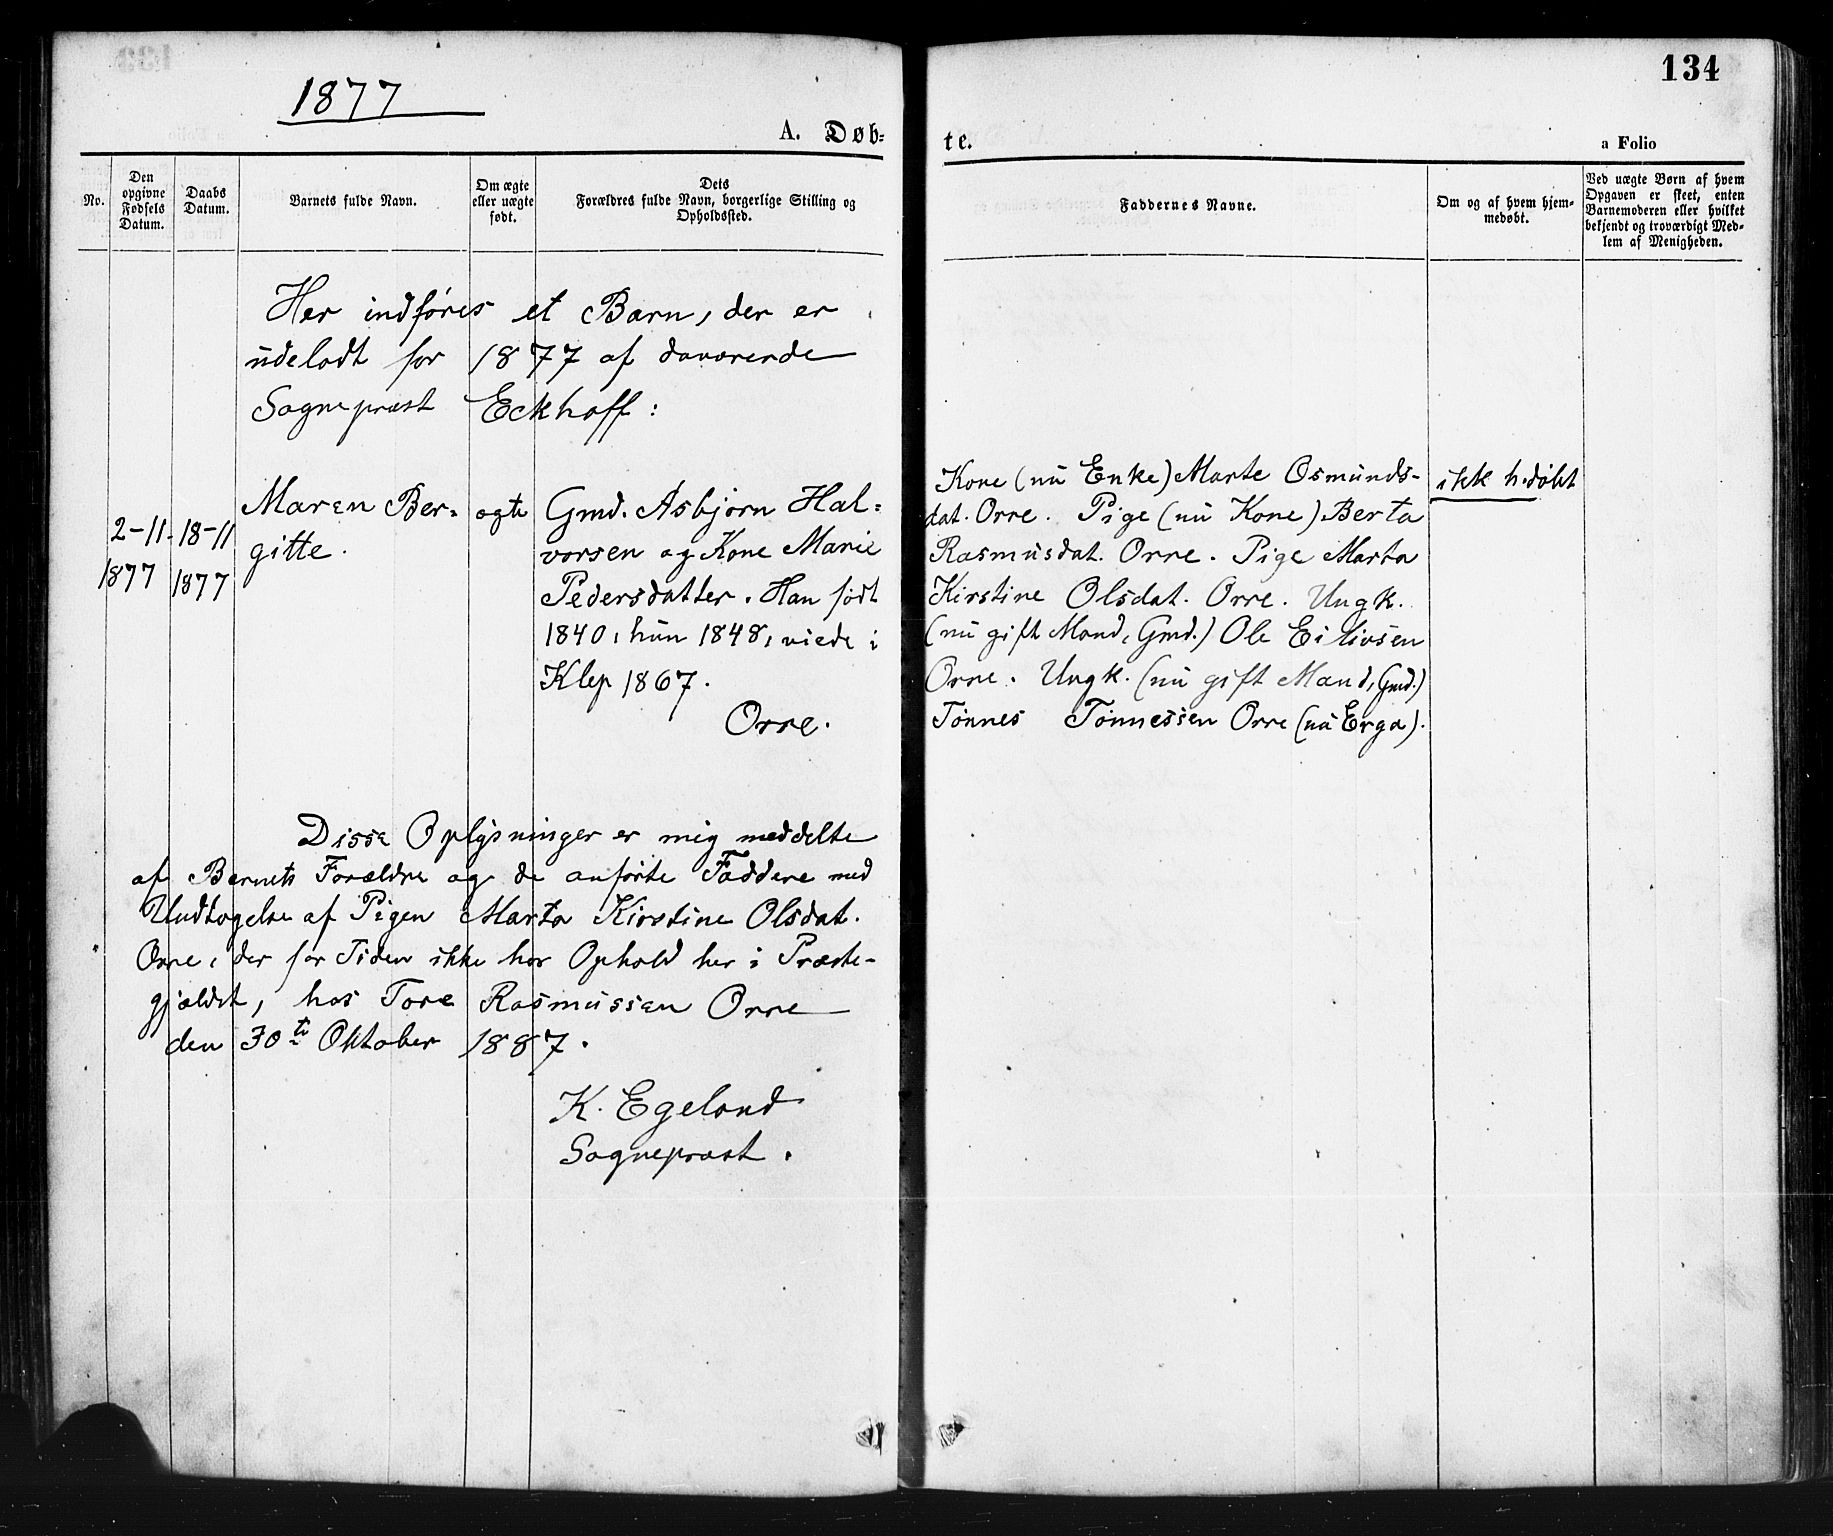 134
1877
A. Døb=
te.
a Folio
No.
Den
opgivne
Fødsels
Datum.
Daabs
Datum.
Barnets fulde Navn.
Om ægte
eller uægte
født.
Dets
Forældres fulde Navn, borgerlige Stilling og
Opholdssted.
Faddernes Navne.
Om og af hvem hjem-
medøbt.
Ved uægte Børn af hvem
Opgaven er skeet, enten
Barnemoderen eller hvilket
bekjendt og troværdigt Med-
lem af Menigheden.
Her indføres et Barn, der er
udeladt for 1877 af daværende
Sognepræst Eckhoff:
2-11-
1877
18-11
1877
Maren Ber=
gitte.
ægte
Gmd. Asbjørn Hal=
vorsen og Kone Marie
Pedersdatter. Han født
1840, hun 1848, viede i
Klep 1867.
Orre.
Kone (nu Enke) Marte Osmunds-
dat. Orre. Pige (nu Kone) Berta
Rasmusdat. Orre. Pige Marta
Kirstine Olsdat. Orre. Ungk.
(nu gift Mand, Gmd.) Ole Eilivsen
Orre. Ungk. (nu gift Mand, Gmd.)
Tønnes Tønnessen Orre (nu Erga).
ikk h.døbt
Disse Oplysninger er mig meddelte
af Barnets Forældre og de anførte Faddere med
Undtagelse af Pigen Marta Kirstine Olsdat.
Orre, der for Tiden ikke har Ophold her i Præste-
gjældet, hos Tore Rasmussen Orre
den 30te Oktober 1887.
K. Egeland
Sognepræst.